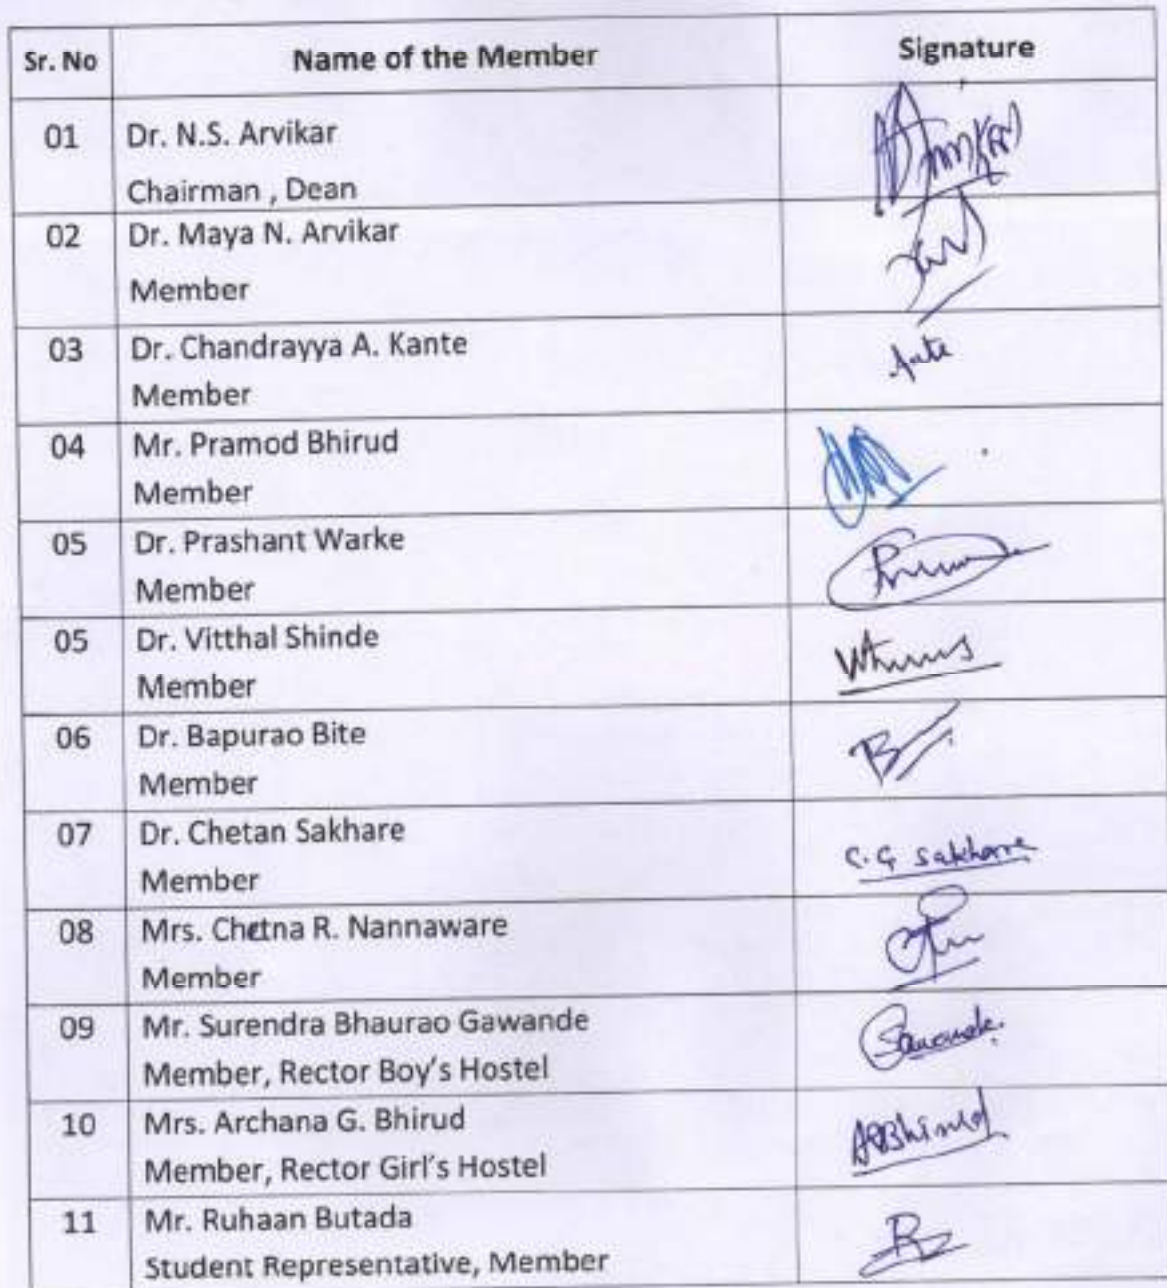 Sr. No Name of the Member Signature
01 Dr. N.S. Arvikar
Chairman , Dean
02 Dr. Maya N. Arvikar
Member
03 Dr. Chandrayya A. Kante
Member
04 Mr. Pramod Bhirud
Member
05 Dr. Prashant Warke
Member
05 Dr. Vitthal Shinde
Member
06 Dr. Bapurao Bite
Member
07 Dr. Chetan Sakhare
C.G Sakhare
Member
08 Mrs. Chetna R. Nannaware
Member
09 Mr. Surendra Bhaurao Gawande
Member, Rector Boy's Hostel
10 Mrs. Archana G. Bhirud
Member, Rector Girl's Hostel
11 Mr. Ruhaan Butada
Student Representative, Member